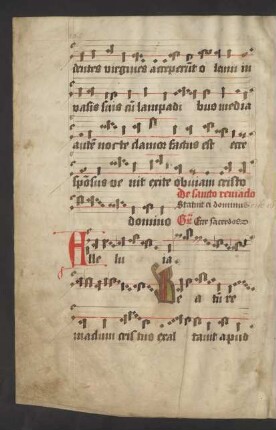 dentes virgines acceperūt oleum in
vasis suis cū lampadibus media
autē nocte clamor factus est ecce
spōsus venit exite obviam cristo
De sancto remado
Statuit ei dominus
domino Gᷓ Ecce sacerdos
Alleluia
Beatum re
madum cristus exaltavit apud